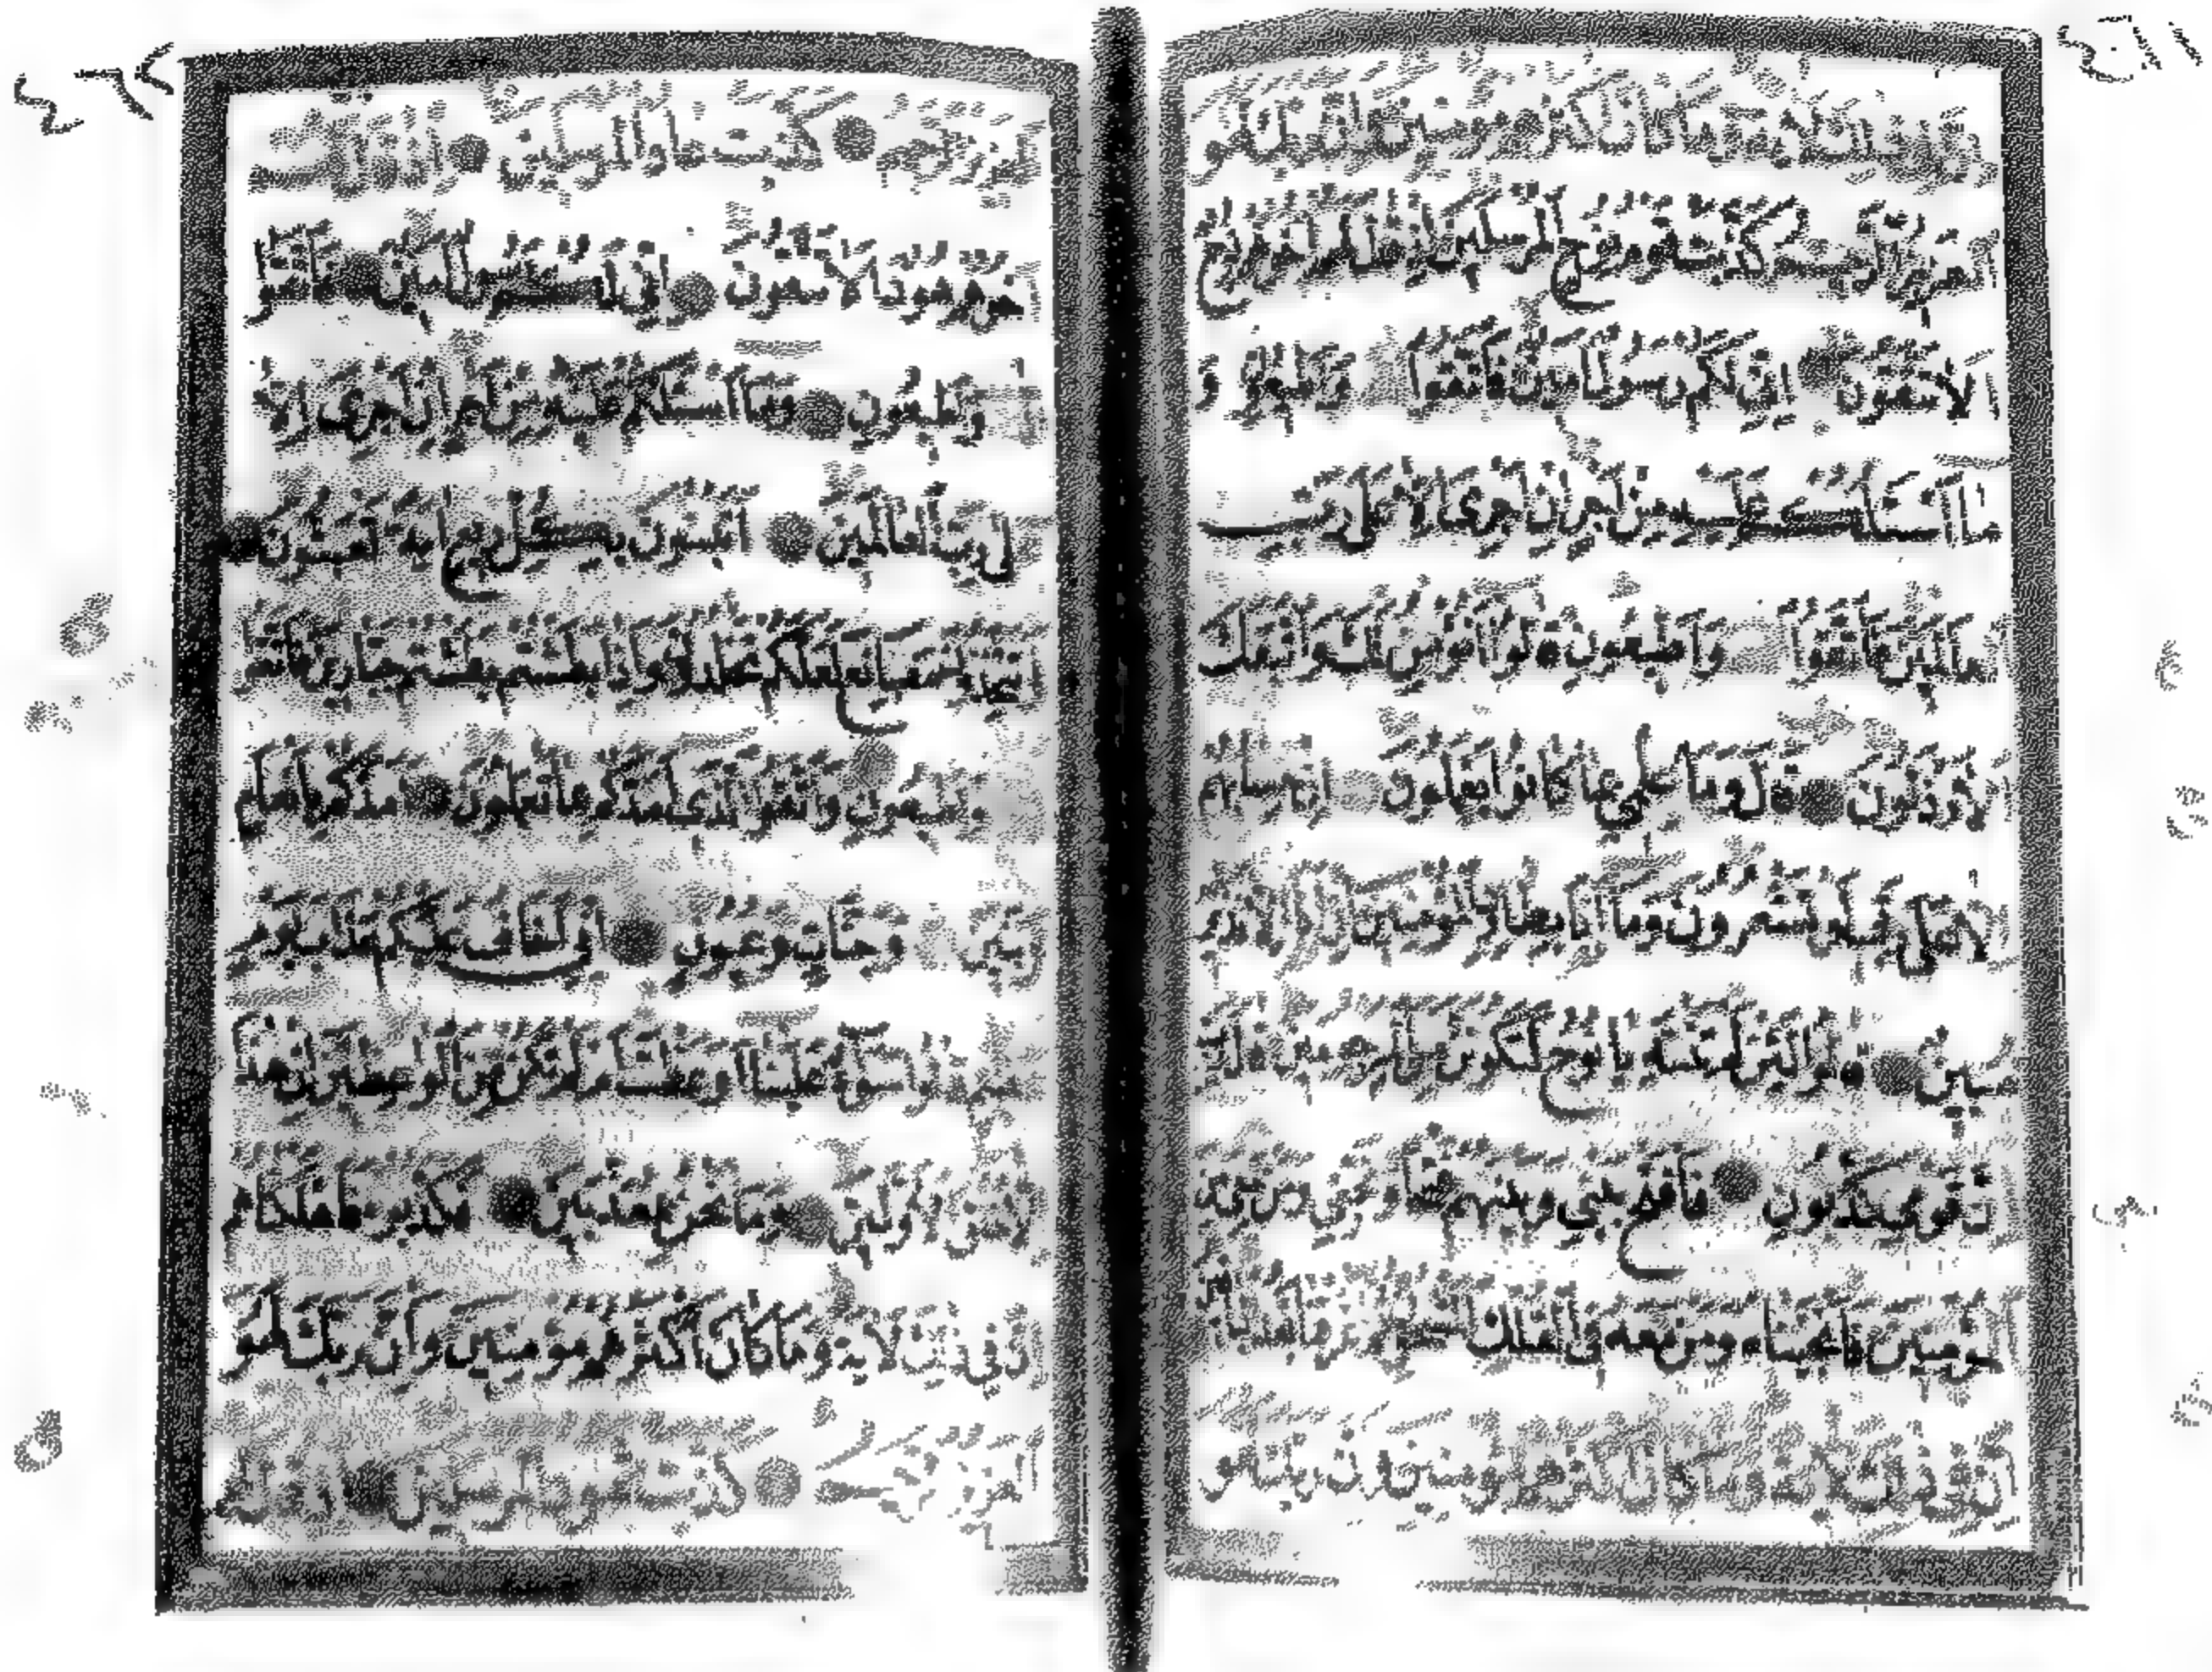 وما كان اكثرهم مومنين وان ربك لهو
العزيز الرحيم كذبت قوم نوح المرسلين اذ قال لهم اخوهم نوح
الا تتقون انى لكم رسول امين فاتقوا الله واطيعون و
ما اسئلكم عليه من اجر ان اجرى الا على رب
العالمين فاتقوا الله واطيعون قالوا انومن لك واتبعك
الارذلون قال وما علمى بما كانوا يعملون ان حسابهم
الا على ربى لو تشعرون وما انا بطارد المومنين ان انا الا نذير
مبين قالوا لئن لم تنته يا نوح لتكونن من المرجومين قال رب
ان قومى كذبون فافتح بينى وبينهم فتحا ونجنى ومن معى من
المومنين فانجيناه ومن معه فى الفلك المشحون ثم اغرقنا بعد الباقين
ان فى ذلك لاية وما كان اكثرهم مومنين وان ربك لهو
العزيز الرحيم كذبت عاد المرسلين اذ قال لهم
اخوهم هود الا تتقون انى لكم رسول امين فاتقوا
الله واطيعون وما اسئلكم عليه من اجر ان اجرى الا
على رب العالمين اتبنون بكل ريع اية تعبثون
وتتخذون مصانع لعلكم تخلدون واذا بطشتم بطشتم جبارين فاتقوا
الله واطيعون واتقوا الذى امدكم بما تعلمون امدكم بانعام
وبنين وجنات وعيون انى اخاف عليكم عذاب يوم
عظيم قالوا سواء علينا اوعظت ام لم تكن من الواعظين ان هذا
الا خلق الاولين وما نحن بمعذبين فكذبوه فاهلكناهم
ان فى ذلك لاية وما كان اكثرهم مومنين وان ربك لهو
العزيز الرحيم كذبت ثمود المرسلين اذ قال لهم